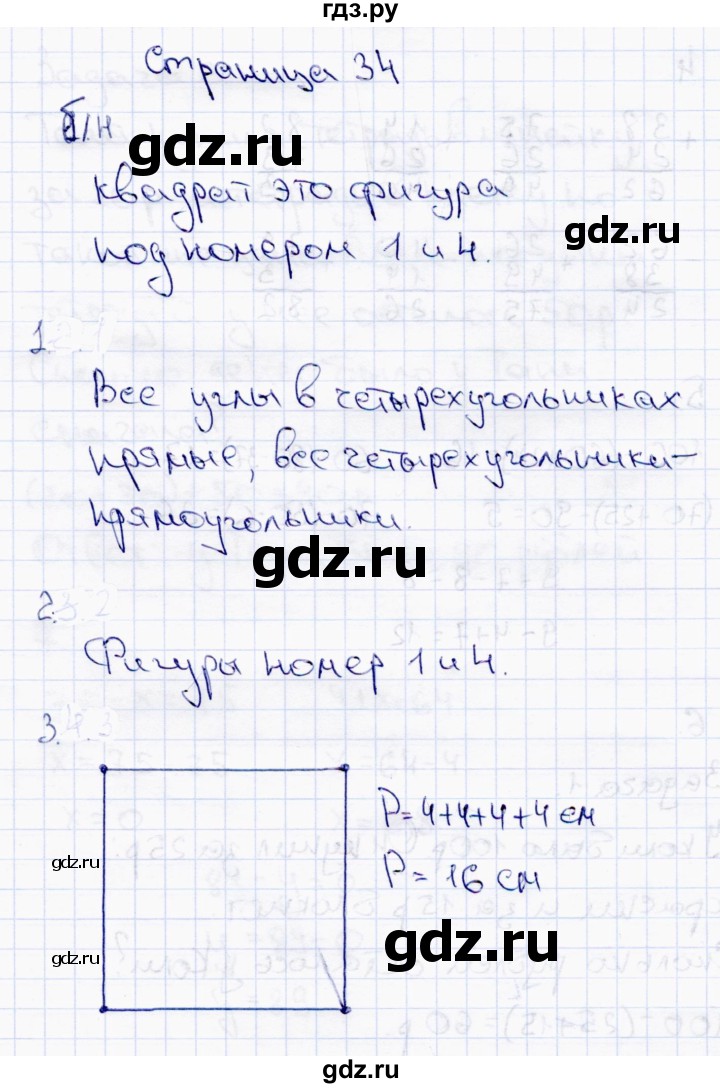 гдз.ру
Страница 34
б/н
gdz.ru
квадрат это фигура
gdz.ru
под номером 1 и 4.
1.
Все углы в четырехугольниках
gdz.ru
прямые, все четырехугольники-
прямоугольники.
gdz.ru
2.
Фигуры номер 1 и 4.
3.
P=4+4+4+4 см
gdz.ru
P=16 см
gdz.ru
gdz.ru
gdz.ru